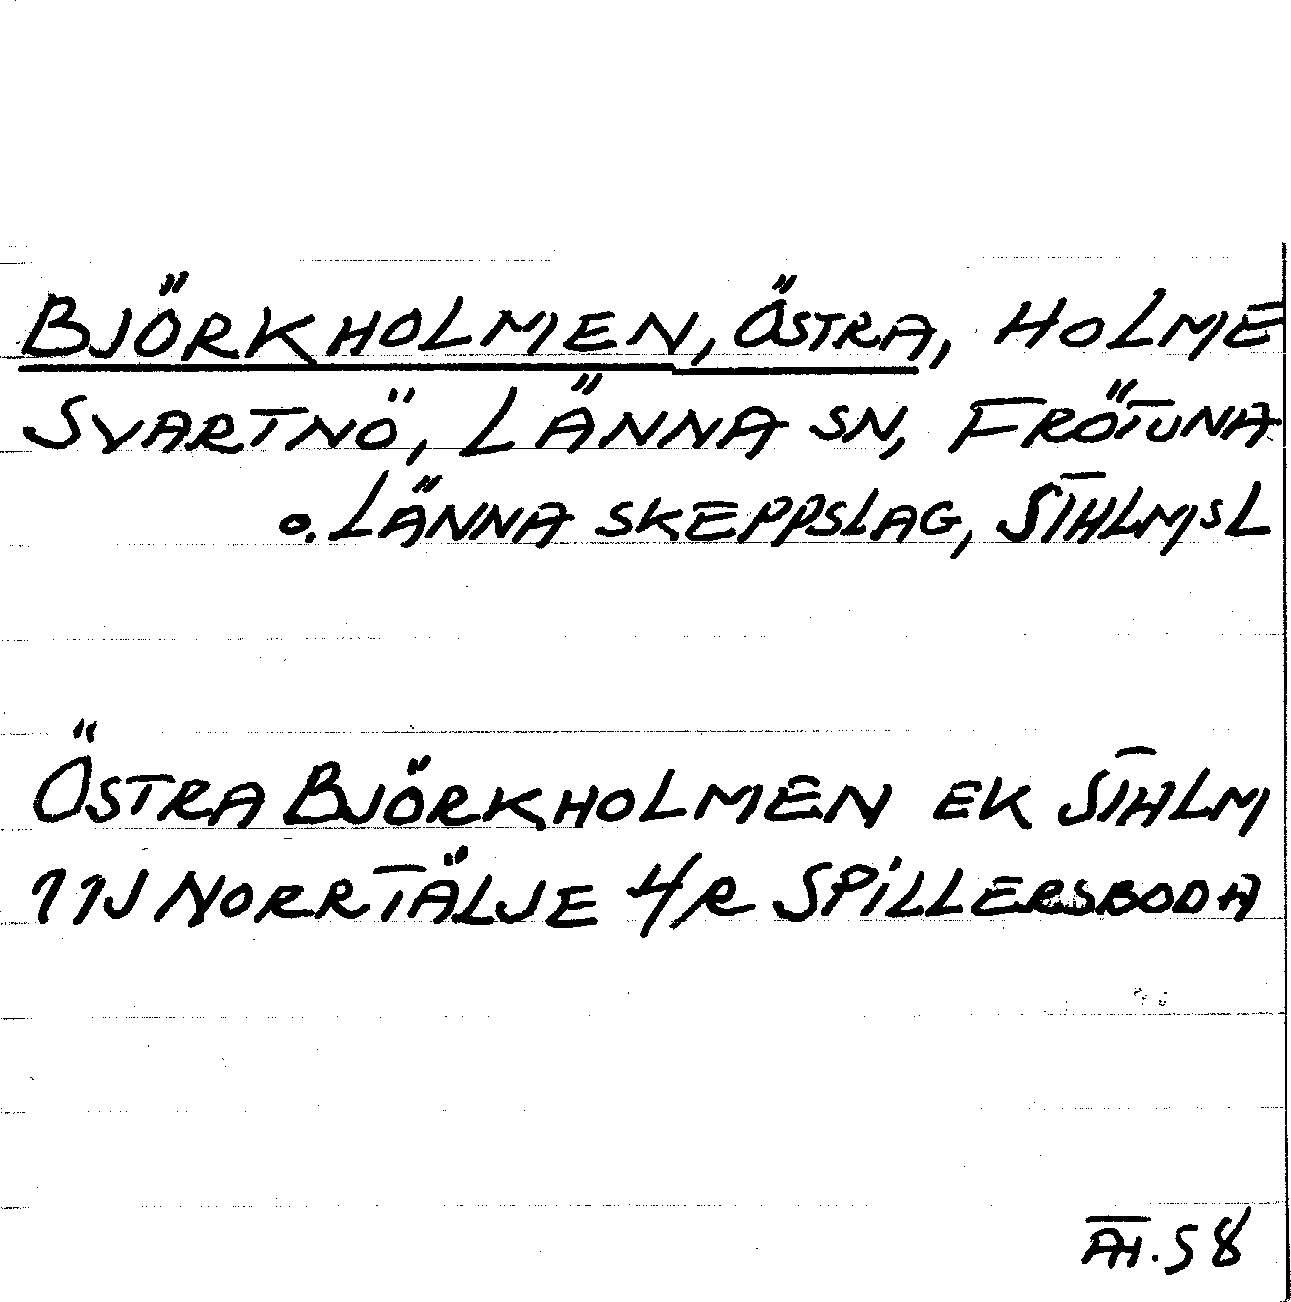 BJÖRKHOLMEN, ÖSTRA, HOLME
SVARTNÖ, LÄNNA SN, FRÖTUNA
o. LÄNNA SKEPPSLAG, STHLMSL
ÖSTRA BJÖRKHOLMEN EK STHLM
11J NORRTÄLJE 4/R SPILLERSBODA
58